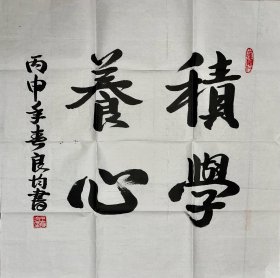 積學
養心
丙申年春良均書